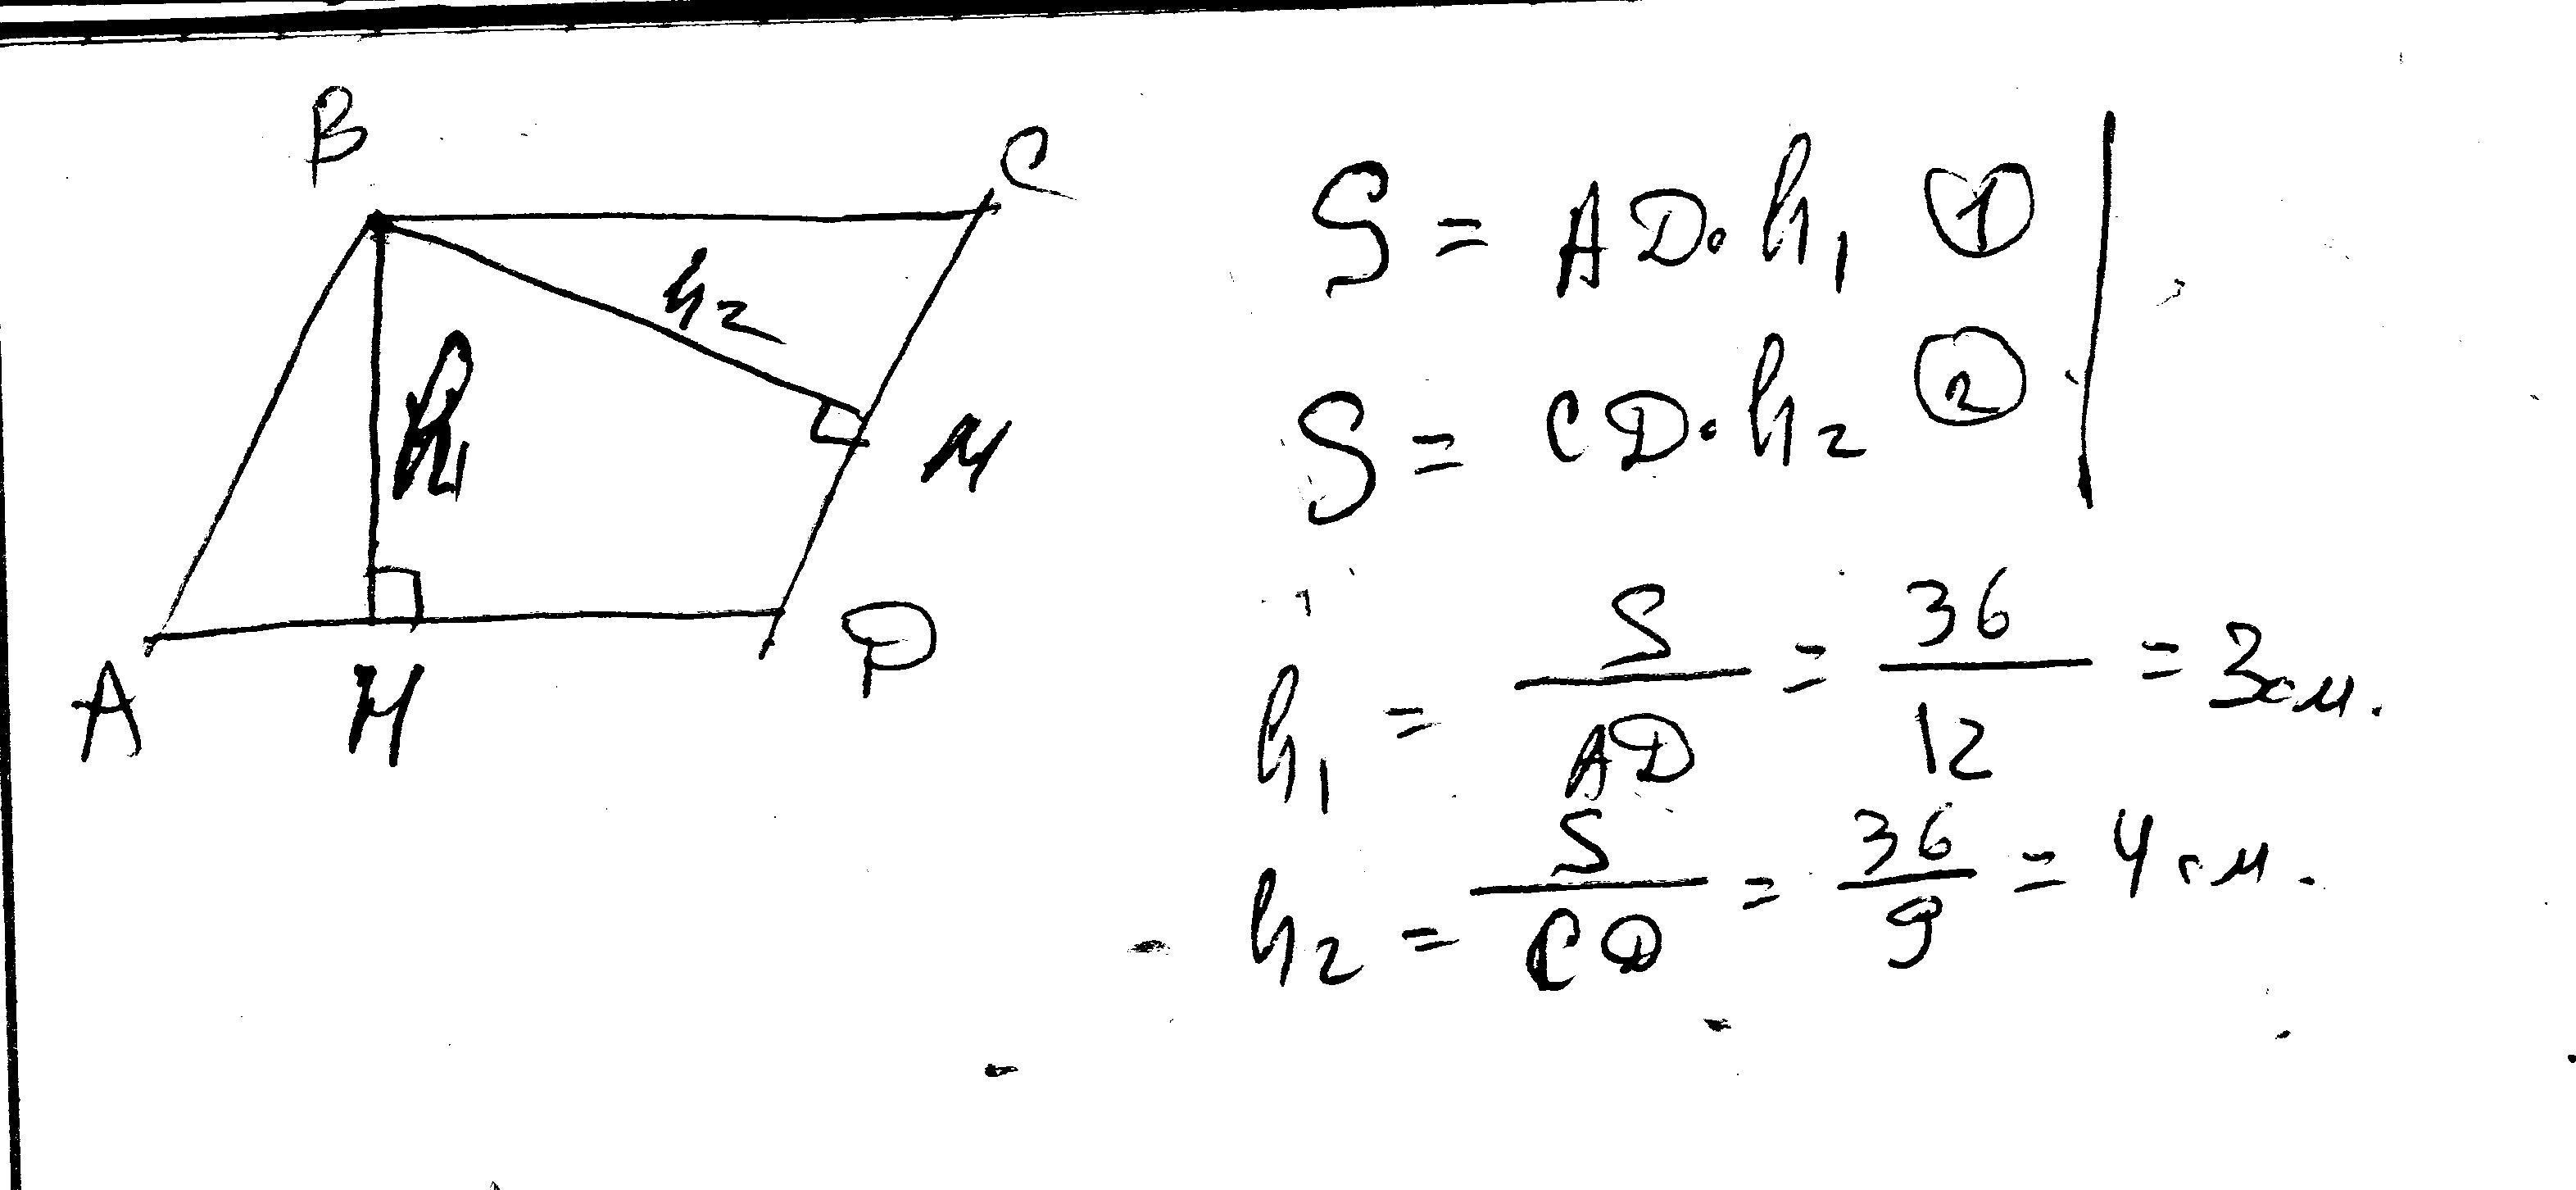 B
C
h₂
h₁
M
A
H
D
S = AD · h₁ ①
S = CD · h₂ ②
h₁ = S/AD = 36/12 = 3 см.
h₂ = S/CD = 36/9 = 4 см.